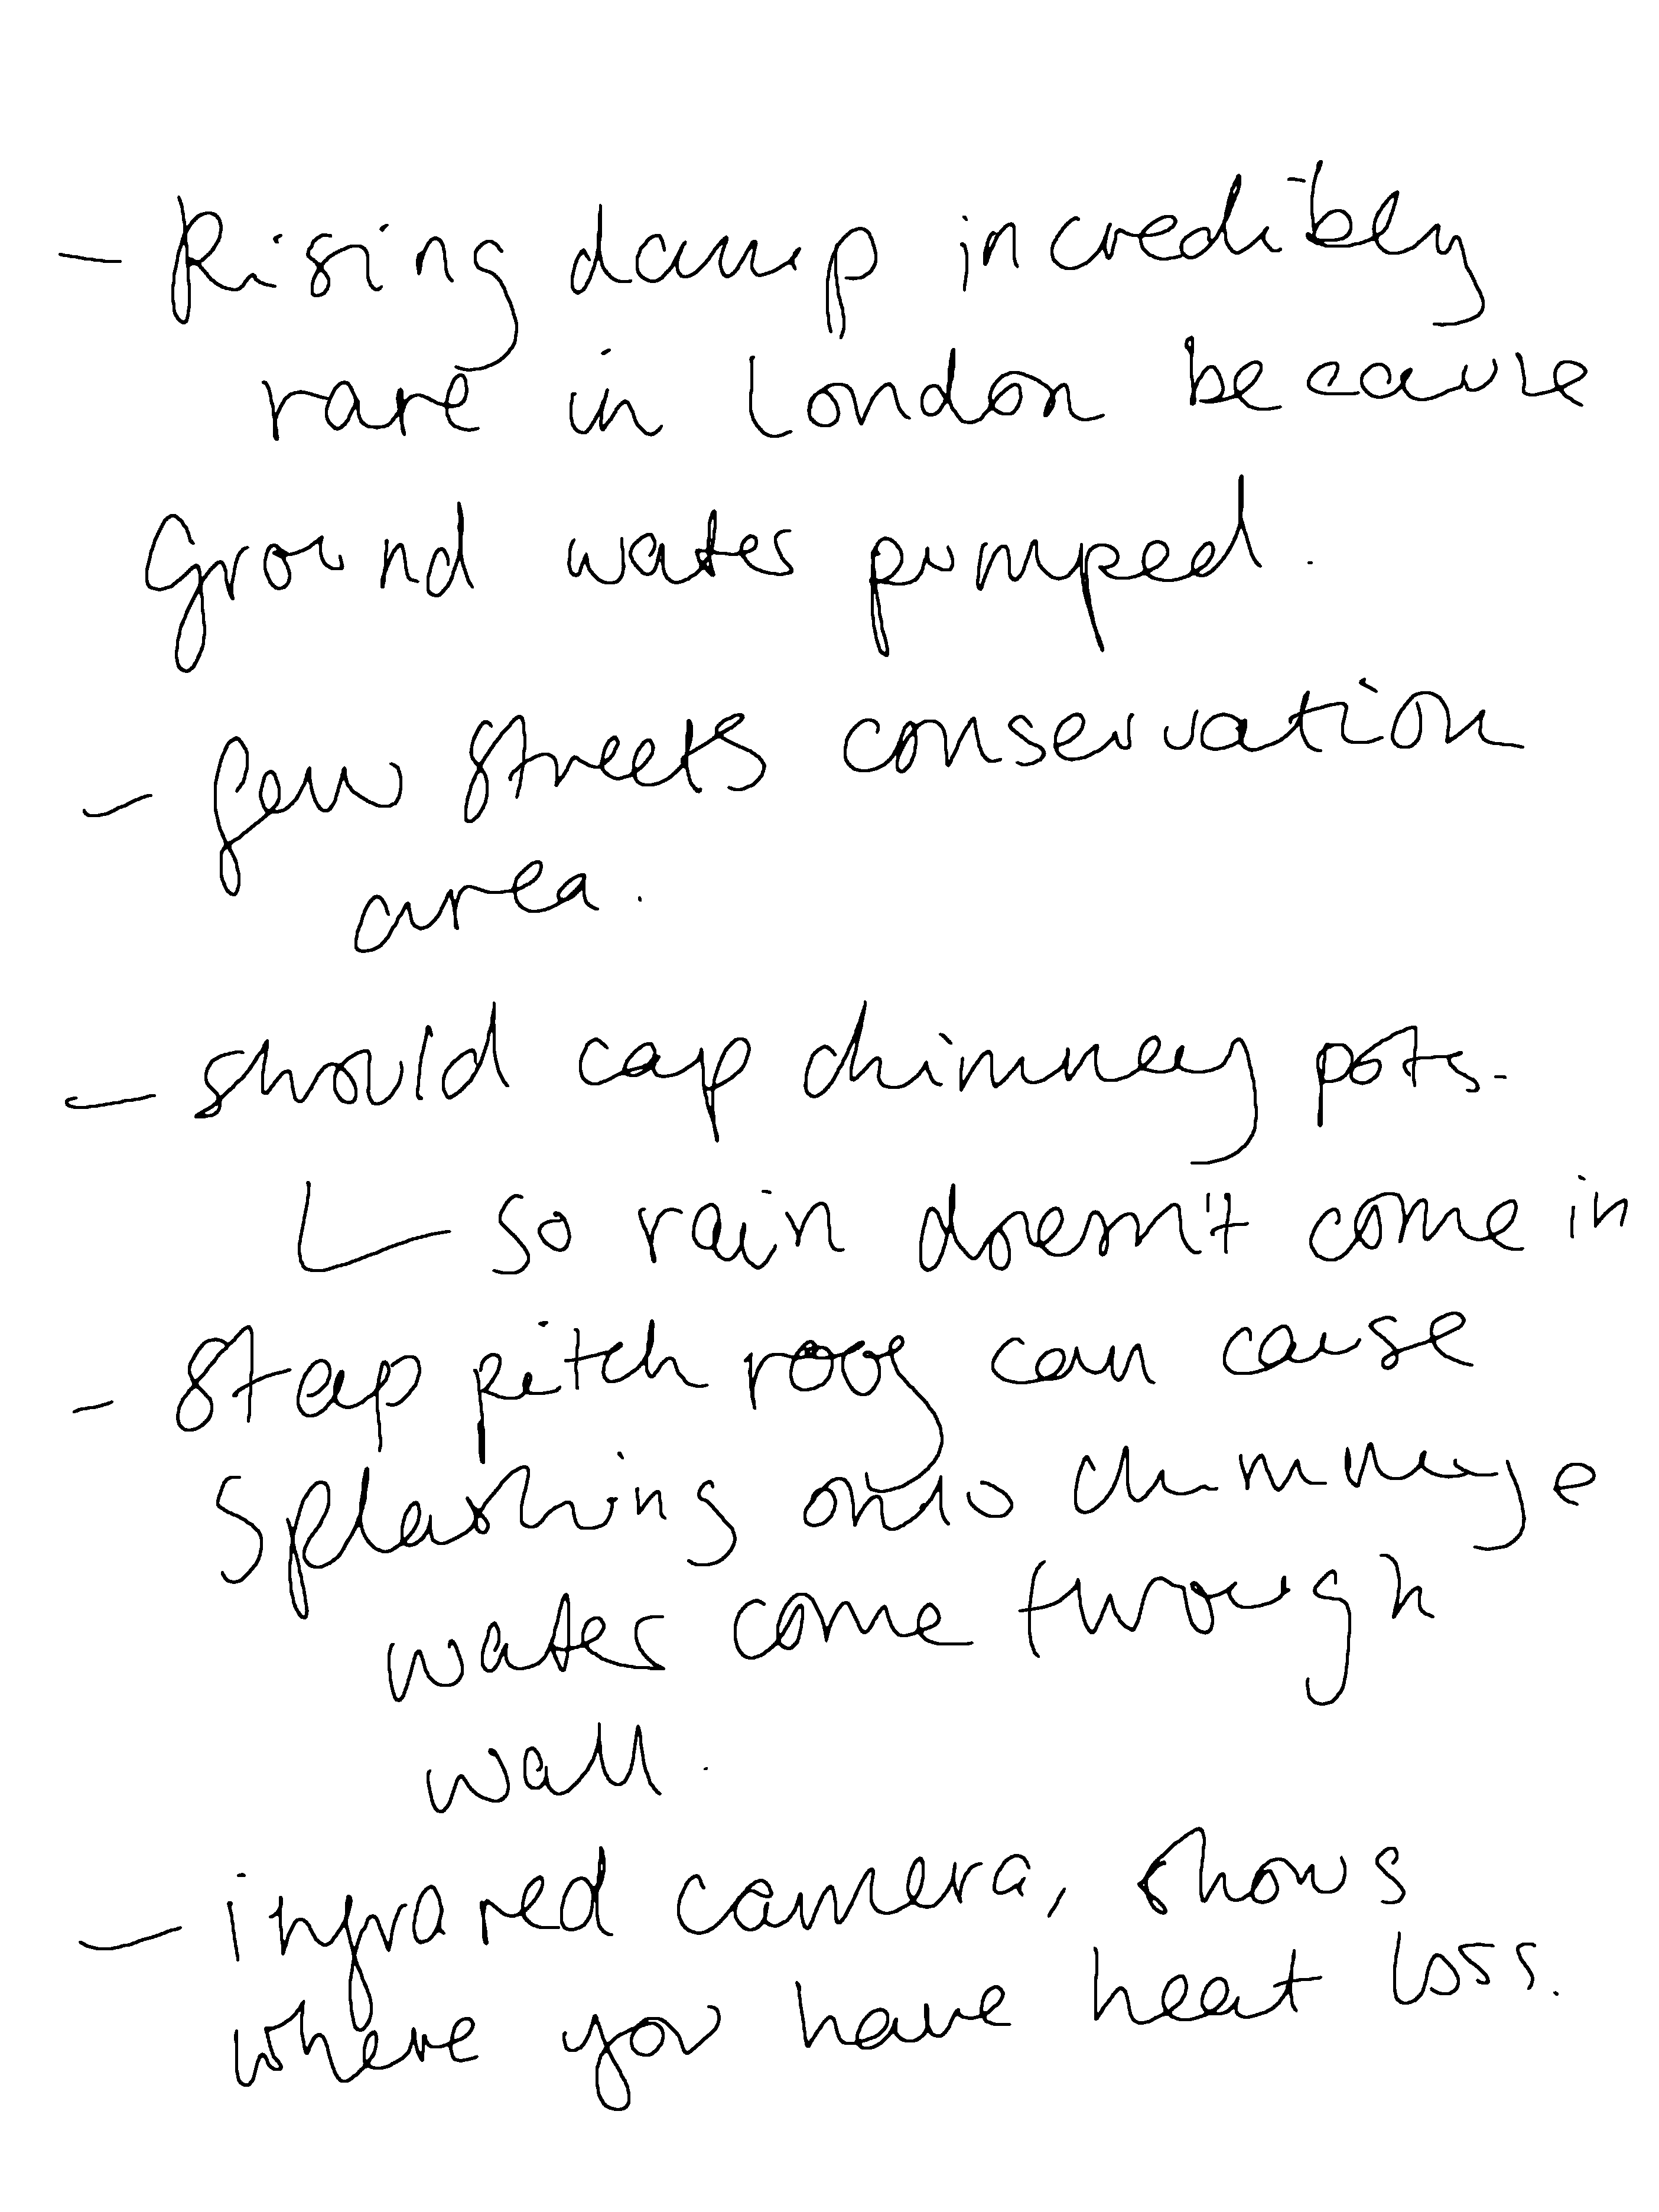 - Rising damp incredibly
rare in London because
Ground water pumped.
- few streets conservation
area.
- should cap chimney pots.
L so rain doesn't come in
- Steep pitch roof can cause
splashing onto chimney e
water come through
wall.
- infrared camera, shows
where you have heat loss.